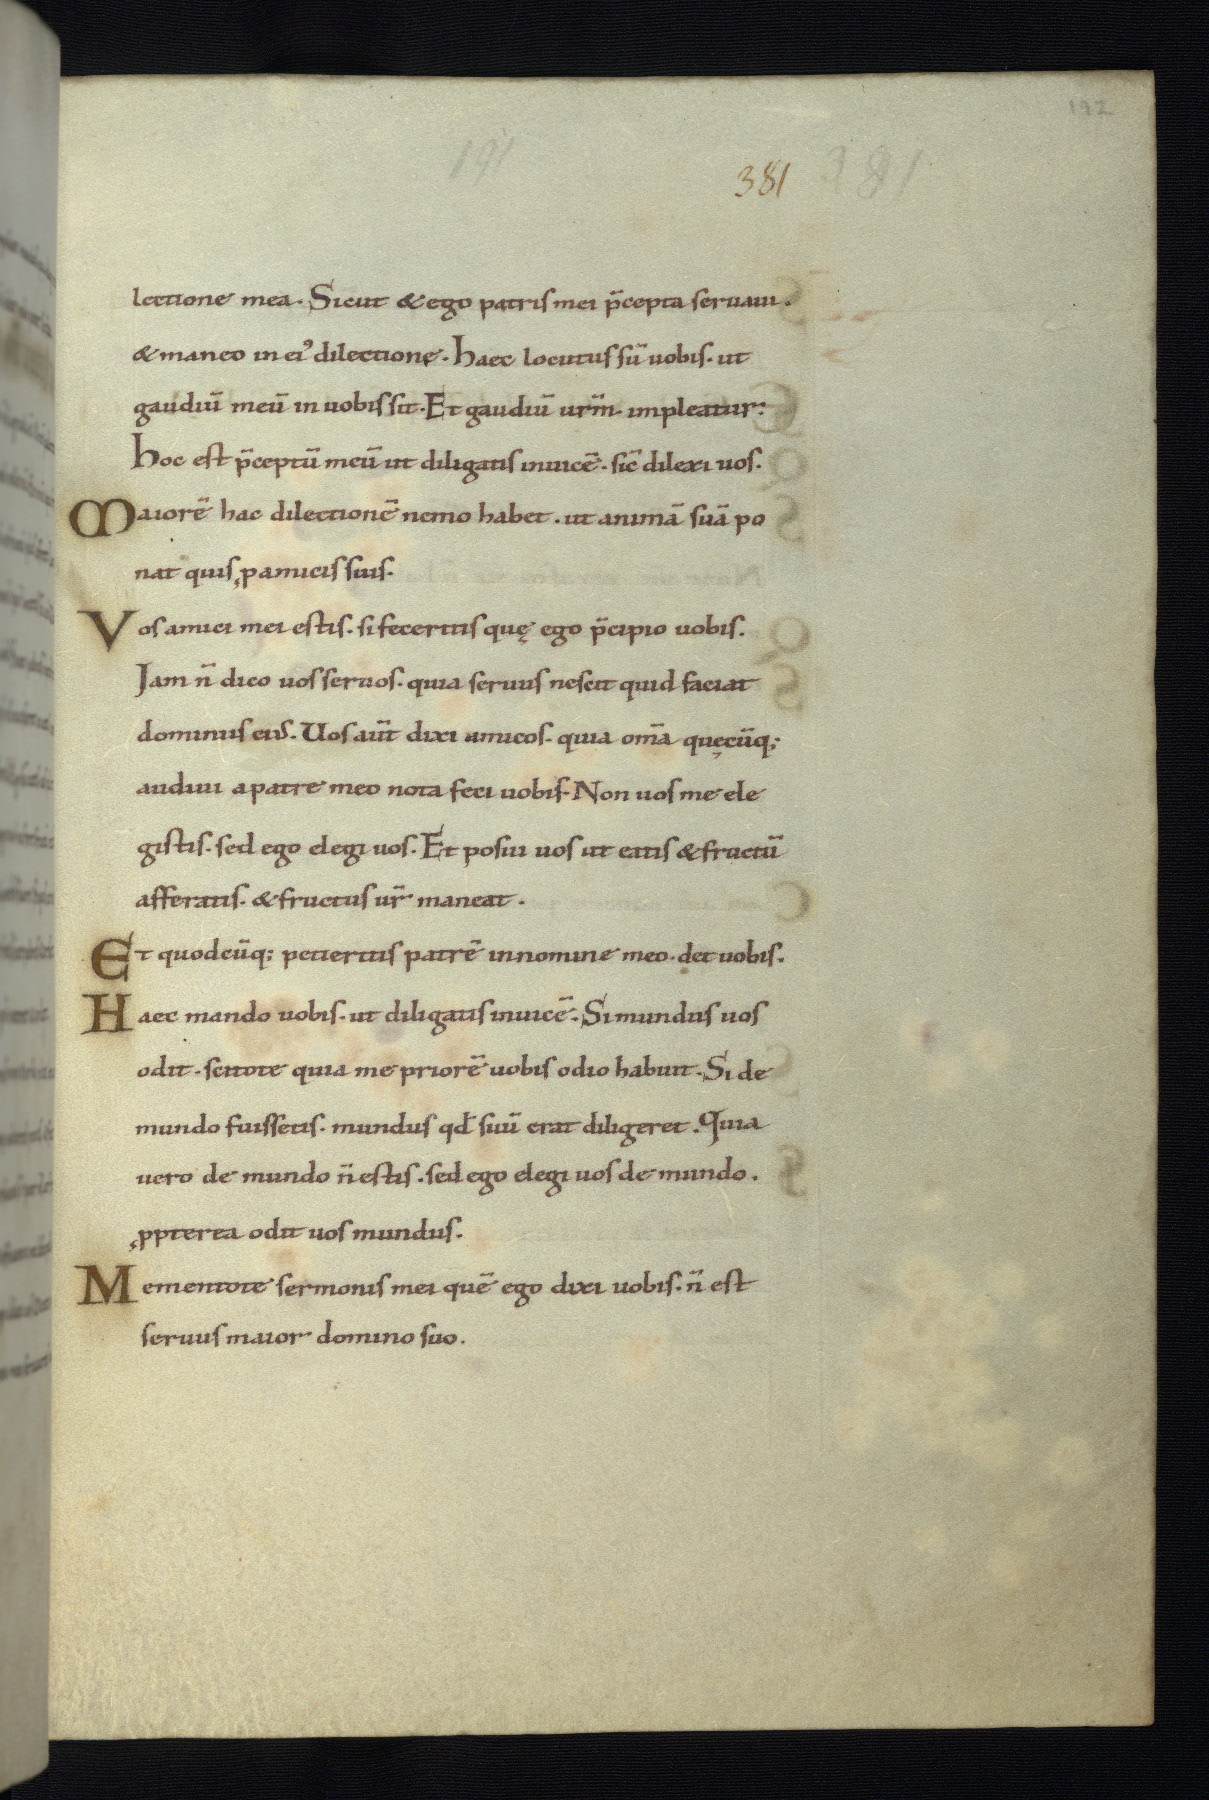 192
191
381 381
lectione mea. Sicut & ego patris mei p̄cepta seruaui.
& maneo in ei᾽ dilectione. haec locutus sū uobis. ut
gaudiū meū in uobis sit. Et gaudiū ur̄m impleatur;
hoc est p̄ceptū meū ut diligatis inuicē. sic̄ dilexi uos.
Maiorē hac dilectionē nemo habet. ut animā suā po
nat quis ꝓ amicis suis.
Vos amici mei estis. si feceritis quę ego p̄cipio uobis.
Jam n̄ dico uos seruos. quia seruus nescit quid faciat
dominus eius. Uos aūt dixi amicos. quia om̄a quęcūq;
audiui a patre meo nota feci uobis. Non uos me ele
gistis. sed ego elegi uos. Et posui uos ut eatis & fructū
afferatis. & fructus ur̄ maneat.
Et quodcūq; petieritis patrē in nomine meo. det uobis.
Haec mando uobis. ut diligatis inuicē. Si mundus uos
odit. scitote quia me priorē uobis odio habuit. Si de
mundo fuissetis. mundus qd̄ suū erat diligeret. Quia
uero de mundo n̄ estis. sed ego elegi uos de mundo.
ꝓpterea odit uos mundus.
Mementote sermonis mei quē ego dixi uobis. n̄ est
seruus maior domino suo.